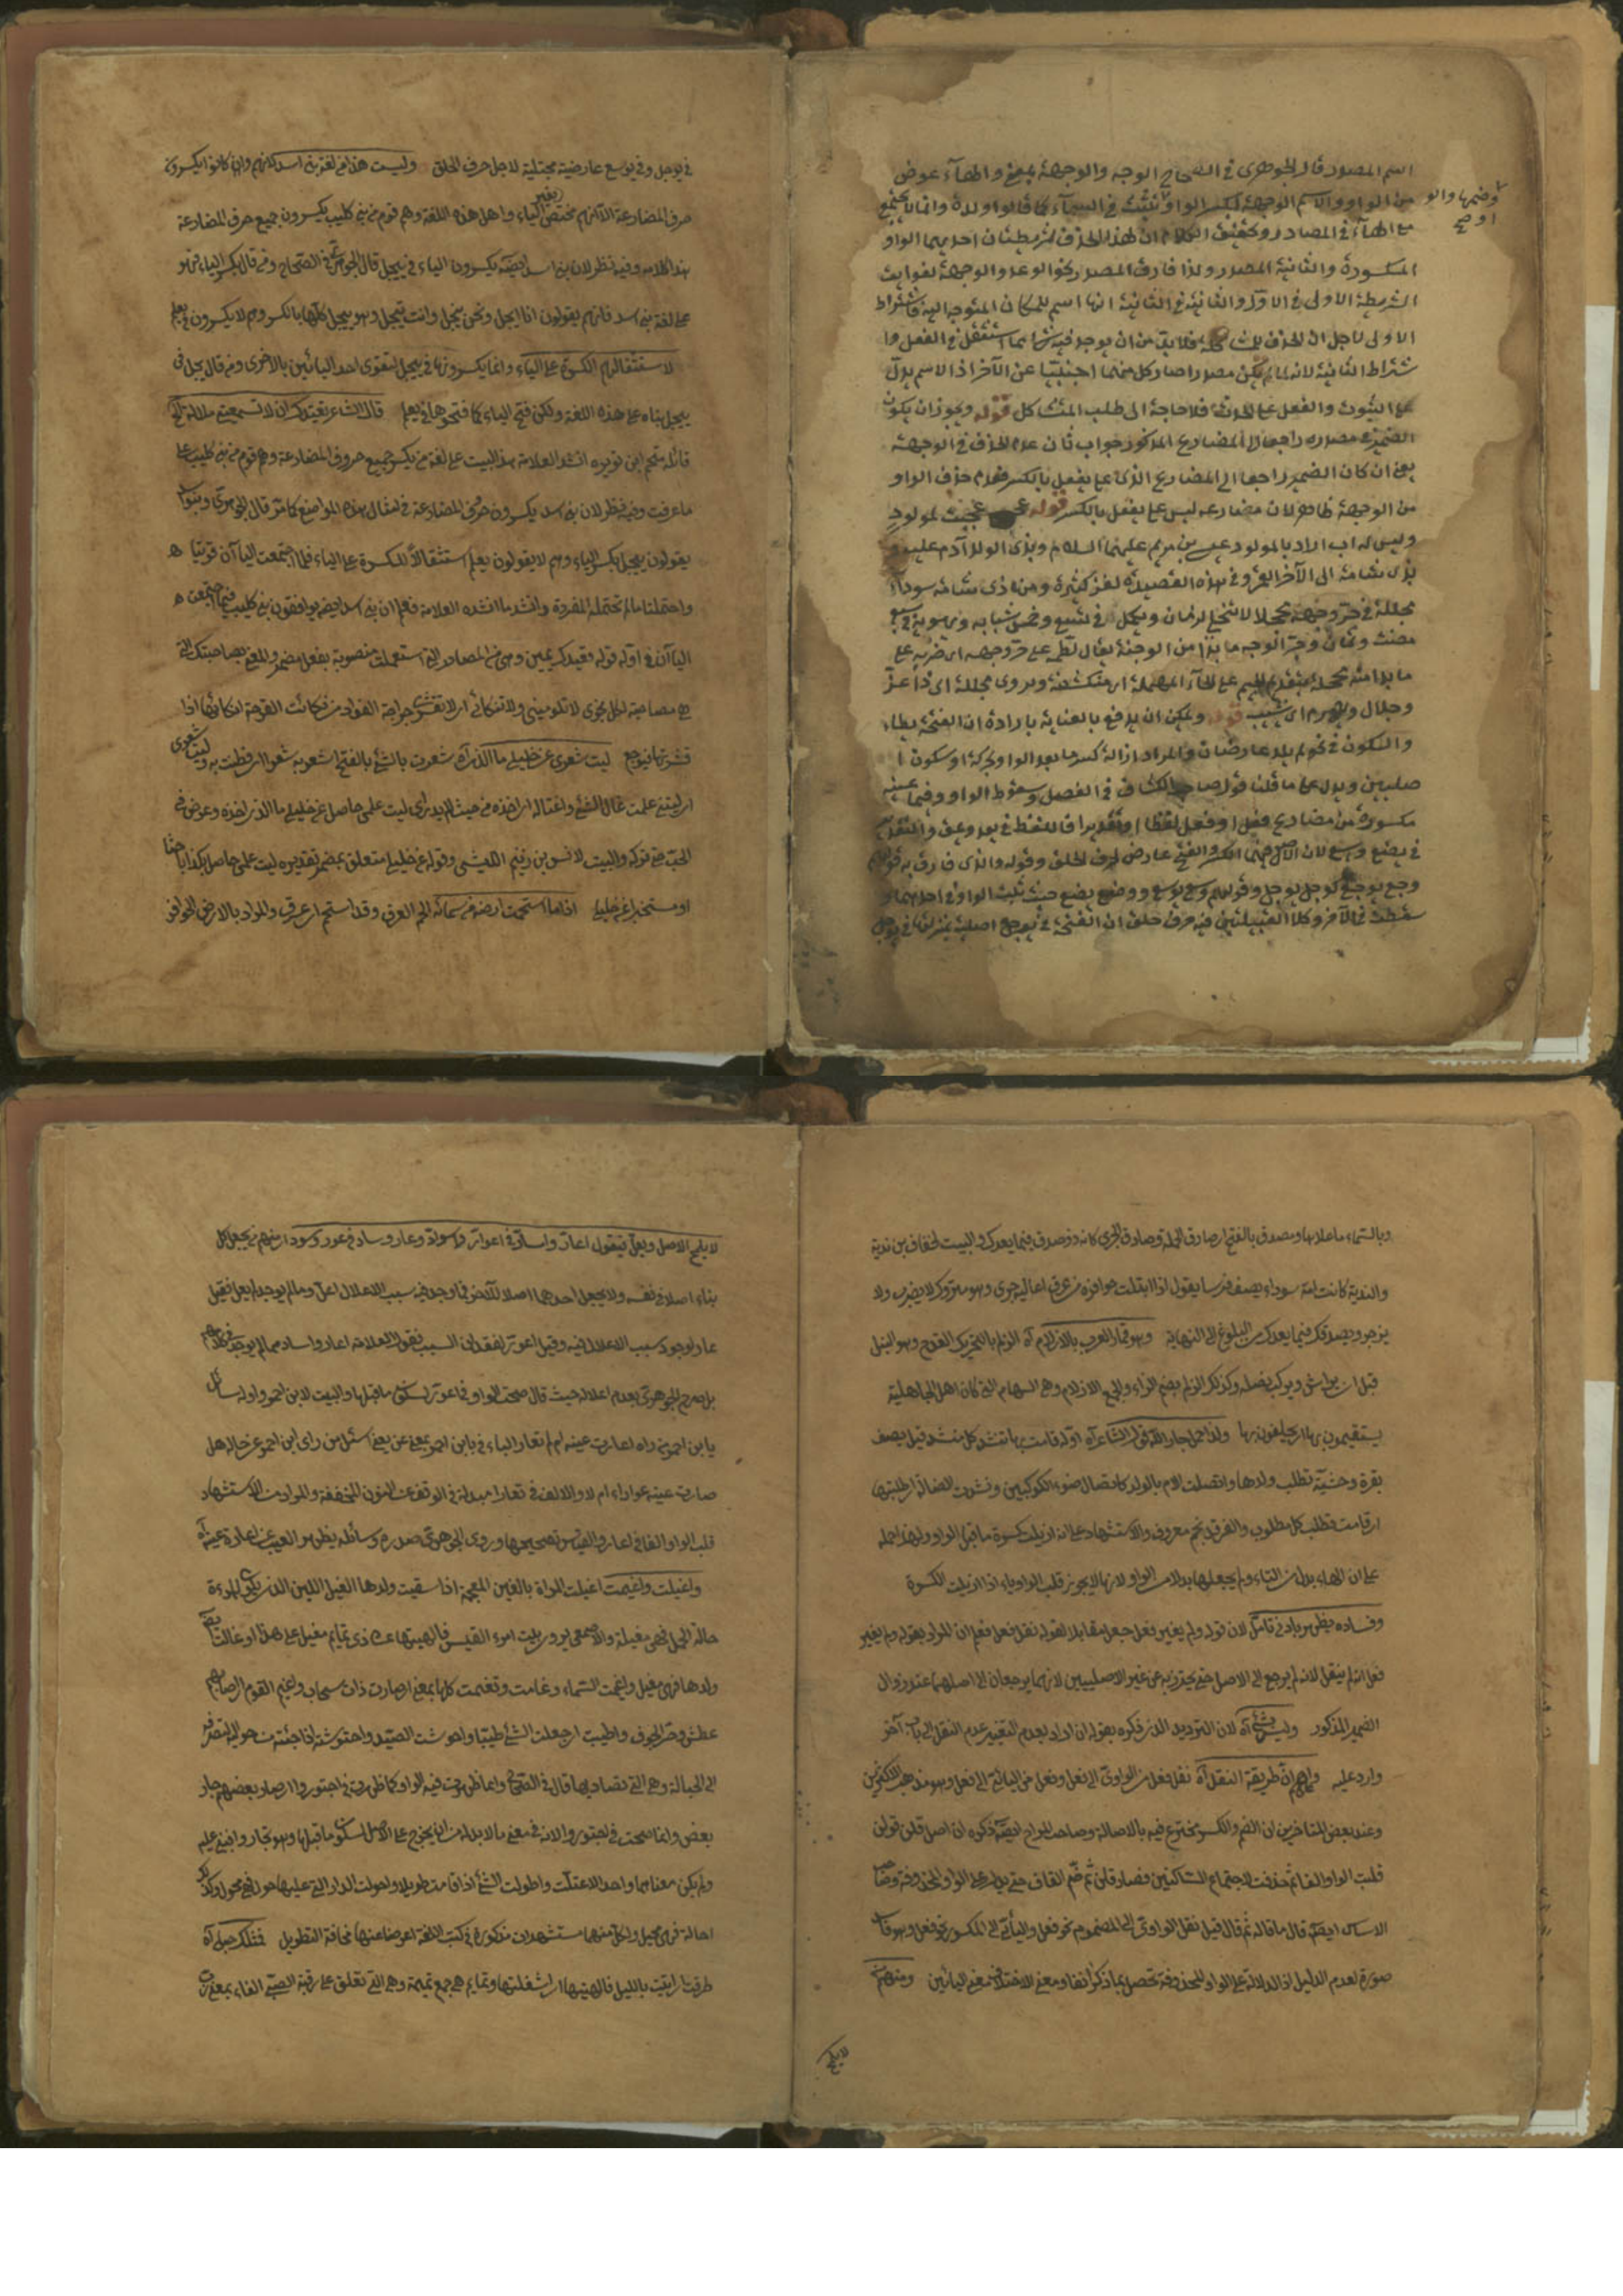 اسم المصدر قال الجوهرى فى الصحاح الوجه والوجهة بمعنى والهاء عوض
من الواو والاسم الوجهة بكسر الواو وضمها والواو تثبت فى الاسماء كما قالوا ولدة وانما لا يجتمع
مع الهاء فى المصادر وتحقيق الكلام ان لهذا الحذف شرطين ان احديهما الواو
المكسورة والثانية المصدر ولذا فارق المصدر نحو الوعد والوجهة لفوات
الشريطة الاولى فى الاول والثانية فى الثانية انها اسم للمكان المتوجه اليه فاشتراط
الاولى لاجل ان الحذف فلابد من ان يوجد فيه ما استثقل فى الفعل وا
شتراط الثانية لانه لما لم يكن مصدرا صار كل منهما اجنبيا عن الآخر اذ الاسم يدل
على الثبوت والفعل على الحدث فلا حاجة الى طلب المتشاكل قوله ويجوز ان يكون
الضمير فى مصدره راجعا الى المضارع المذكور جواب ثان عدم الحذف فى الوجهة
يعنى ان كان الضمير راجعا الى المضارع الذى على يفعل بالكسر فعدم حذف الواو
من الوجهة ظاهر لان مضارعه ليس على يفعل بالكسر قوله عجبت لمولود
وليس له اب اراد بالمولود عيسى بن مريم عليهما السلام وبذى الولد آدم عليه
بذى شامة الى الآخر القمر وفى هذه القصيدة لغز كثيرة ومن ذى شامة سوداء
مجللة فى حر وجهه لا تنجلى لزمان ويكمل فى تسع وخمس شبابه ويهرم فى سبع
مضت وثمان وحر الوجه ما بدا من الوجنة يقال لطمه على حر وجهه اى ضربه على
ما بدا منه بتقديم الجيم على الحاء المهملة اى منكشفة ويروى مجللة اى ذا عز
وجلال ويهرم اى يشيب قوله ويمكن ان يدفع بالعناية بارادة ان الفتحة يطاء
والسكون فى لم يلد عارضان والمراد ازالة كسر ما بعد الواو بحركة او سكون ا
صليين ويدل على ما قلنا قول صاحب الكشاف فى المفصل وسقوط الواو وفيما عينه
مكسورة من مضارع فعل او فعل لفظا او تقديرا فاللفظ فى يعد وعق والتقدير
فى يضع ويسع لان الاصل فيهما الكسر والفتح عارض لحرف الحلق وقوله والذى فارق به قولهم
وجع يوجع كوجل يوجل وقولهم وسع يوسع ووضع يضع حيث ثبت الواو فى احدهما و
سقطت فى الآخر وكلا القبيلتين فيه حرف حلق ان الفتحة فى يوجع اصلية بمنزلتها فى يوجل
فى يوجل وفى يوسع عارضية مجتلبة لاجل حرف الحلق وليست هذا من لغة بنى اسد لانهم وان كانوا يكسرون
حرف المضارعة الا انهم يختص بغير الياء واهل هذه اللغة وهم قوم من بنى كليب يكسرون جميع حرف المضارعة
هذا كلامه وفيه نظر لان بنى اسد ايضا يكسرون الياء فى ييجل قال الجوهرى فى الصحاح ومن قال بكسر الياء فهو
على لغة بنى اسد فانهم يقولون انا ايجل ونحن نيجل وانت تيجل وهو ييجل كلها بالكسر وهم لا يكسرون فى يعلم
لاستثقالهم الكسرة على الياء وانما يكسرونها فى ييجل لتقوى احد اليائين بالاخرى ومن قال ييجل فى
ييجل بناه على هذه اللغة ولكن فتح الياء كما فتحوها فى يعلم قال الشاعر قعيدك ان لا تسمعينى ملامة الخ
قائله متمم ابن نويره انشد العلامة هذا البيت على لغة من يكسر جميع حروف المضارعة وهم قوم من بنى كليب على
ما عرفت وفيه نظر لان بنى اسد يكسرون حرف المضارعة فى امثال هذه المواضع كما مر قال الجوهرى وبنو اسد
يقولون ييجل بكسر الياء وهم لا يقولون يعلم استثقالا للكسرة على الياء فلما اجتمعت اليا آن قويتا
واحتملتا ما لم تحتمله المفردة وانشد ما انشده العلامة فعلم ان بنى اسد ايضا يوافقون بنى كليب فيما اجتمعت
اليا آن فى اوله قوله قعيدك يمين وهى من المصادر التى استعملت منصوبة بفعل مضمر والمعنى بصاحبك الذى
هو صاحب كل نجوى لا تلومينى ولا تنكائى اى لا تقشرى جراحة الفؤاد من نكأت القرحة انكأها اذا
قشرتها فييجع ليت شعرى عن خليلى ما الذى اه شعرت بالشئ بالفتح اشعر به شعرا اى فطنت به وليت شعرى
اى ليتنى علمت غال الشئ واغتاله اى اخذه من حيث لم يدر اى ليت علمى حاصل عن خليلى ما الذى اخذه وعرض فى
الحب حتى تركه والبيت لانس بن زنيم الليثى وقوله عن خليلى متعلق بمضمر تقديره ليت علمى حاصل بكذا باحثا
او مستخبرا عن خليلى اذا ما استحمت ارضه من سمائه الحم العرق وقد استحم اى عرق والمراد بالارض الحوافر
وبالسماء ما علاها ومصدق بالفتح اى صادق الحملة وصادق الجرى كانه ذو صدق فيما يعدك والبيت لخفاف بن ندبة
والندبة كانت امة سوداء يصف فرسا يقول اذا ابتلت حوافره من عرق اعاليه جرى وهو متروك لا يضرب ولا
يزجر ويصدقك فيما يعدك من البلوغ الى النهاية وهو قمار العرب بالازلام اه الزلم بالتحريك القدح وهو النبل
قبل ان يراش ويركب نصله وكذلك الزلم بضم الزاء والجمع الازلام وهى السهام التى كان اهل الجاهلية
يستقيمون بها اى يحلفون بها ولذا حمل جار الله قول الشاعر اه اوله قامت بها تنشد كل منشد قيل يصف
بقرة وحشية تطلب ولدها واتصلت الام بالولد كاتصال ضوء الكوكبين ونشدت الضالة اى طلبتها
اى قامت تطلب كل مطلوب والفرقد نجم معروف والاستشهاد على انه ازيلت كسرة ما قبل الواو ولهذا حمله
على ان الهاء بدل من التاء ولم يجعلها بدلا من الواو لانها لا يجوز قلب الواو ياء اذا ازيلت الكسرة
وفساده يظهر بادنى تأمل لان قوله ولم يغير فعل جعل مقابلا لقوله نقل فعل فعلم ان المراد بقوله ولم يغير
فعل انه لم ينقل لانه لم يرجع الى الاصل حتى يحترز به عن غير الاصليين لانهما يرجعان الى اصلهما عند زوال
الضمير المذكور وليس بشئ اه لان الترديد الذى ذكره بقوله ان اراد بعدم التغيير عدم النقل الى باب آخر
وارد عليه واعلم ان طريقة النقل اه نقل فعل من الواوى الى فعل وفعل من اليائى الى فعل وهو مذهب الاكثرين
وعند بعض المتأخرين ان الضم والكسر مخترع فيه بالاصالة وصاحب المراح ايضا ذكره ان اصل قلن قولن
قلبت الواو الفا ثم حذفت لاجتماع الساكنين فصار قلن ثم ضم القاف حتى يدل على الواو المحذوفة وصاحب
الاساس ايضا قال ما قاله ثم قال قيل نقل الواوى الى المضموم نحو فعل واليائى الى المكسور نحو فعل وهو
صورة لعدم الدليل اذ الدلالة على الواو المحذوفة تحصل بما ذكر آنفا ومعنى الاختلاف معنى اليائين ومنهم من
لا يلمح
لا يلمح الاصل ويعل فيقول اعار واساد فى اعوار واسواد وعار وساد فى عور وسود اى منهم من يجعل كل
بناء اصلا فى نفسه ولا يجعل احدهما اصلا للآخر فما وجد فيه سبب الاعلال اعل وما لم يوجد لم يعل فقيل
عار لوجود سبب الاعلال فيه وقيل اعور لفقدان السبب فقول العلامة اعار واساد مما لم يوجد فى كلامهم
بل صرح الجوهرى بعدم اعلاله حيث قال صحت الواو فى اعور لسكون ما قبلها والبيت لابن احمر واوله سائل
يا بن احمر من راه اعارت عينه ام لم تعارا الباء فى بابن احمر بمعنى عن يعنى اسئل من راى ابن احمر عن حاله هل
صارت عينه عوراء ام لا والالف فى تعارا مبدلة فى الوقف عن النون المخففة والمراد من الاستشهاد
قلب الواو الفا فى اعار والقياس تصحيحها وروى الجوهرى صدره وسائلة بظهر الغيب عنى اعارت عينه اه
واغيلت واغيمت اغيلت المراة بالغين المعجمة اذا سقيت ولدها الغيل اللبن الذى يكون للمرءة
حالة الحمل فهى مغيلة والاصمعى يروى بيت امرء القيس فالهيتها عن ذى تمايم مغيل على هذا او غالت ايضا
ولدها فهى مغيل واغيمت السماء وغامت وتغيمت كلها بمعنى اى صارت ذات سحاب واغيم القوم اصابهم
عطش وحر الجوف واطيبت اى جعلت الشئ طيبا واحوشت الصيد واحتوشته اذا جئته من حواليه لتصرفه
الى الحبالة وهى التى تصاد بها قال فى الصحاح وانما ظهرت فيه الواو كما ظهرت فى اجتوروا اى صار بعضهم جار
بعض وانما صحت فى اجتوروا لانه فى معنى ما لا بد له من ان يخرج على الاصل لسكون ما قبلها وهو تجاوروا فبنى عليه
ولم يكن معناهما واحدا لاعتلت واطولت الشئ اذا قامت طويلا واحولت الدار اتى عليها حول فهى محول وكذلك
احالت فهى محيل ولكل منهما مستشهدات مذكورة فى كتب اللغة اعرضنا عنها مخافة التطويل فمثلك حبلى اه
طرقت اى اتيت بالليل فالهيتها اى شغلتها وتمايم هى جمع تميمة وهى التى تعلق على رقبة الصبى الفاء بمعنى رب